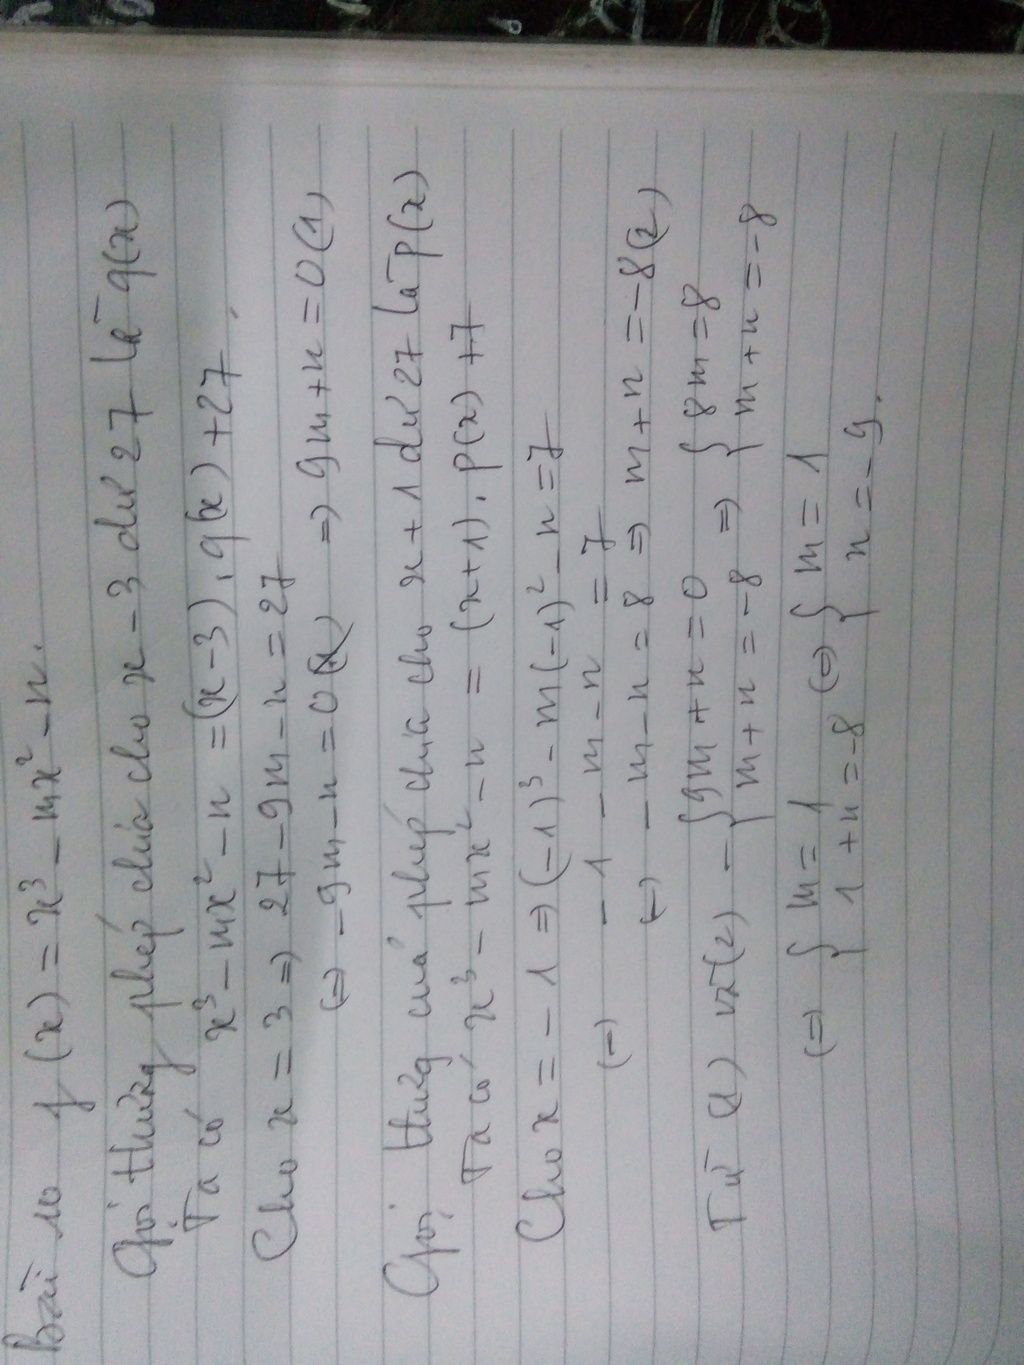 Bài 10 f(x) = x³ - mx² - n.
Gọi thương phép chia cho x - 3 dư 27 là q(x)
Ta có x³ - mx² - n = (x-3).q(x) + 27.
Cho x = 3 => 27 - 9m - n = 27
<=> -9m - n = 0 => 9m + n = 0 (1)
Gọi thương của phép chia cho x + 1 dư 27 là P(x)
Ta có x³ - mx² - n = (x+1).P(x) + 7
Cho x = -1 => (-1)³ - m(-1)² - n = 7
<=> -1 - m - n = 7
<=> -m - n = 8 => m + n = -8 (2)
Từ (1) và (2) - { 9m + n = 0 => { 8m = 8
m + n = -8 m + n = -8
<=> { m = 1 <=> { m = 1
1 + n = -8 n = -9.